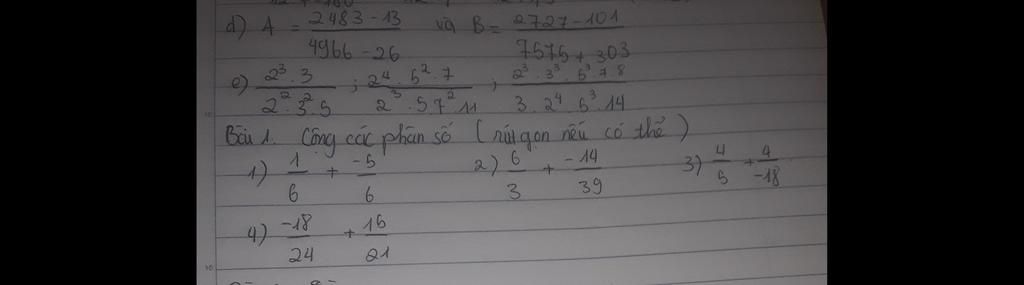 d) A = \frac{2483-13}{4966-26} và B = \frac{2727-101}{7575+303}
e) \frac{2^3 \cdot 3}{2^2 \cdot 3^2 \cdot 5} ; \frac{2^4 \cdot 5^2 \cdot 7}{2^3 \cdot 5 \cdot 7^2 \cdot 11} ; \frac{2^3 \cdot 3^3 \cdot 5^3 \cdot 7 \cdot 8}{3 \cdot 2^4 \cdot 5^3 \cdot 14}
Bài 1. Cộng các phân số (rút gọn nếu có thể)
1) \frac{1}{6} + \frac{-5}{6} 2) \frac{6}{3} + \frac{-14}{39} 3) \frac{4}{5} + \frac{4}{-18}
4) \frac{-18}{24} + \frac{15}{21}